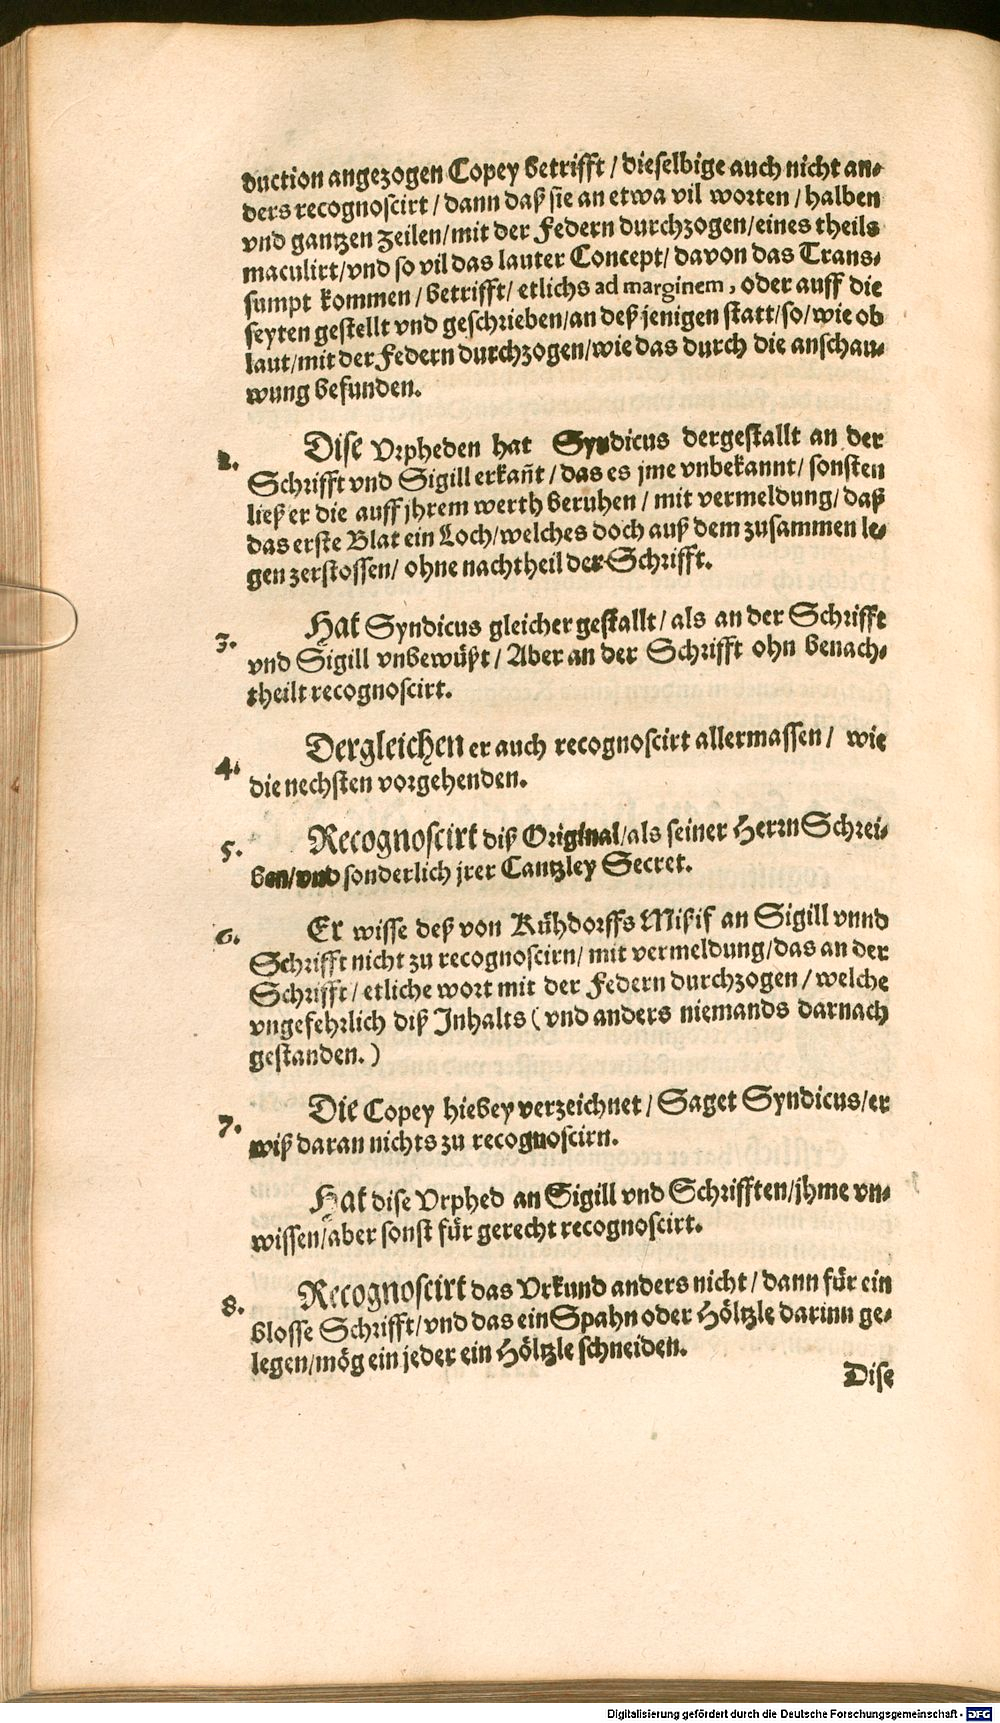 duction angezogen Copey betrifft / dieselbige auch nicht an-
ders recognoscirt / dann daß sie an etwa vil worten / halben
vnd gantzen Zeilen/mit der Federn durchzogen/eines theils
maculirt/vnd so vil das lauter Concept/ davon das Trans-
sumpt kommen / betrifft/ etlichs ad marginem, oder auff die
seyten gestellt vnd geschrieben/an deß jenigen statt/so/wie ob
laut/mit der Federn durchzogen/wie das durch die anschau-
wung befunden.
2. Dise Vrpheden hat Syndicus dergestallt an der
Schrifft vnd Sigill erkañt / das es jme vnbekannt/ sonsten
ließ er die auff jhrem werth beruhen / mit vermeldung/ daß
das erste Blat ein Loch/welches doch auß dem zusammen le-
gen zerstossen/ ohne nachtheil der Schrifft.
3. Hat Syndicus gleicher gestallt / als an der Schrifft
vnd Sigill vnbewüßt / Aber an der Schrifft ohn benach-
theilt recognoscirt.
4. Dergleichen er auch recognoscirt allermassen / wie
die nechsten vorgehenden.
5. Recognoscirt diß Original/als seiner Herrn Schrei-
ben/vnd sonderlich jrer Cantzley Secret.
6. Er wisse deß von Kühdorffs Mißif an Sigill vnnd
Schrifft nicht zu recognoscirn/ mit vermeldung/das an der
Schrifft / etliche wort mit der Federn durchzogen / welche
vngefehrlich diß Inhalts ( vnd anders niemands darnach
gestanden. )
7. Die Copey hiebey verzeichnet / Saget Syndicus/er
wiß daran nichts zu recognoscirn.
Hat dise Vrphed an Sigill vnd Schrifften/jhme vn-
wissen/aber sonst für gerecht recognoscirt.
8. Recognoscirt das Vrkund anders nicht / dann für ein
blosse Schrifft/vnd das ein Spahn oder Höltzle darinn ge-
legen/mög ein jeder ein Höltzle schneiden.
Dise
Digitalisierung gefördert durch die Deutsche Forschungsgemeinschaft - DFG